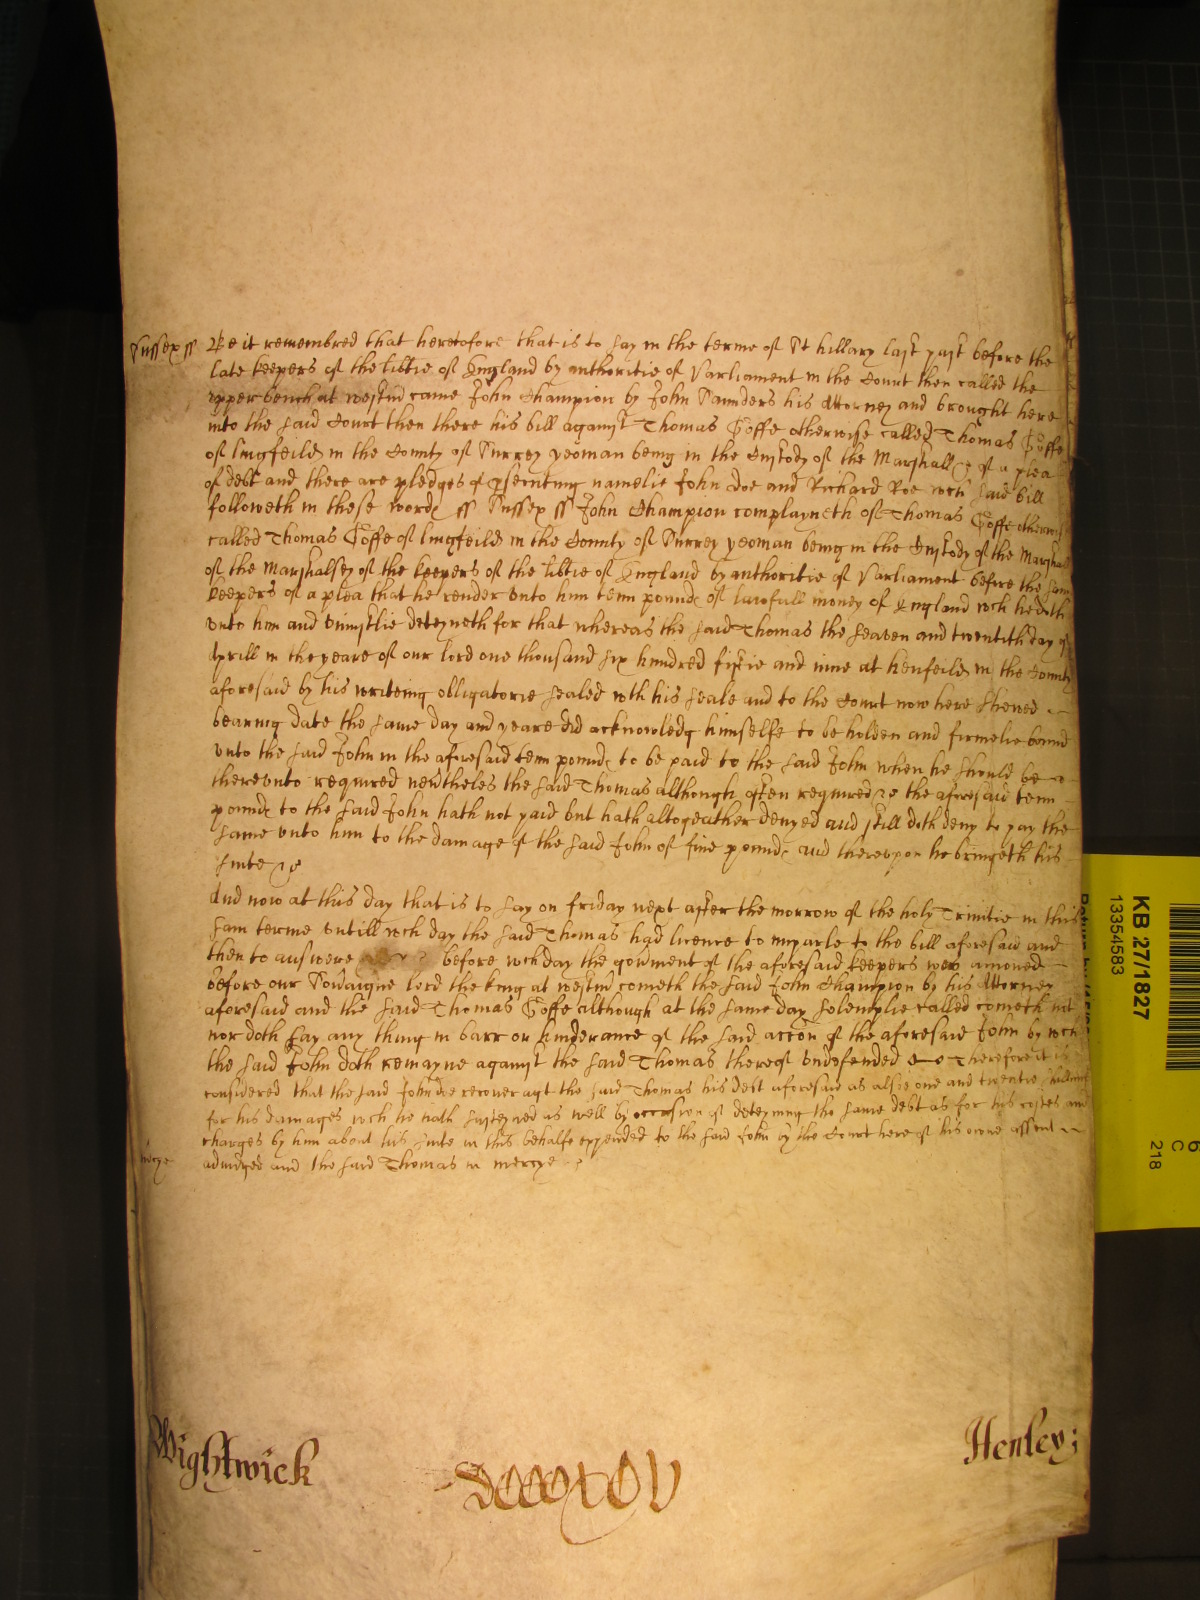 Sussex ss Be it remembred that heretofore that is to say in the terme of St hillary last past before the
late keepers of the libtie of England by authoritie of Parliament in the Court then called the
upper bench at westm came John Champion by John Saunders his Attorney and brought here
into the said Court then there his bill against Thomas Goffe otherwise called Thomas Goffe
of lingfeild in the County of Surrey yeoman being in the Custody of the Marshall &c of a plea
of debt and there are pledges of psecuting namelie John Doe and Richard Roe wch said bill
followeth in these words ss Sussex ss John Champion complayneth of Thomas Goffe otherwise
called Thomas Goffe of lingfeild in the County of Surrey yeoman being in the Custody of the Marshall
of the Marshalsey of the keepers of the libtie of England by authoritie of Parliament before the same
keepers of a plea that he render unto him tenn pounds of lawfull money of England wch he oweth
unto him and uniustlie deteyneth for that whereas the said Thomas the seaven and twentith day of
Aprill in the yeare of our lord one thousand six hundred fiftie and nine at henfeild in the County
aforesaid by his writeing obligatorie sealed with his seale and to the Court now here shewed
bearing date the same day and yeare did acknowledg himselfe to be holden and firmelie bound
unto the said John in the aforesaid tenn pounds to be paid to the said John when he should be
thereunto required nevtheles the said Thomas although often required &c the aforesaid tenn
pounds to the said John hath not paid but hath altogeather denyed and still doth deny to pay the
same unto him to the damage of the said John of five pounds and thereupon he bringeth his
suite &c
And now at this day that is to say on friday next after the morrow of the holy Trinitie in this
same terme untill wch day the said Thomas had licence to imparle to the bill aforesaid and
then to answere before wch day the govment of the aforesaid keepers was amoved
before our Sovaigne lord the king at westm cometh the said John Champion by his Attorney
aforesaid and the said Thomas Goffe although at the same day solemplie called cometh not
nor doth say any thing in barr or hinderance of the said accon of the aforesaid John by wch
the said John doth remayne against the said Thomas thereof undefended Therefore it is
considered that the said John doe recover agt the said Thomas his debt aforesaid as alsoe one and twentie shillings
for his damages wch he hath susteyned as well by occasion of deteyning the same debt as for his costes and
charges by him about his suite in this behalfe expended to the said John by the Court here of his owne assent
mercye adiudged and the said Thomas in mercye &c
Wightwick Henley
KB 27/1827
13354583
218